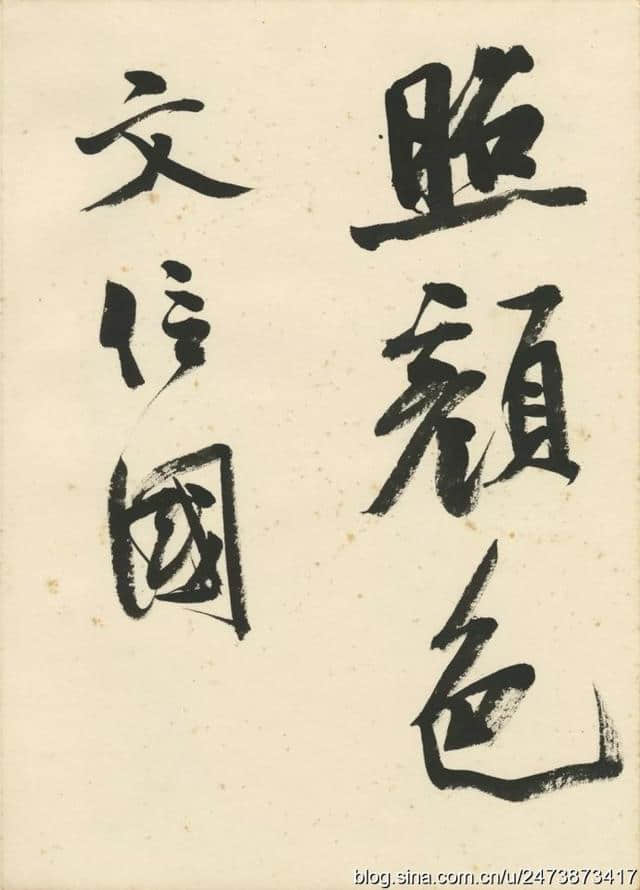 照顏色
文信國
blog.sina.com.cn/u/2473873417